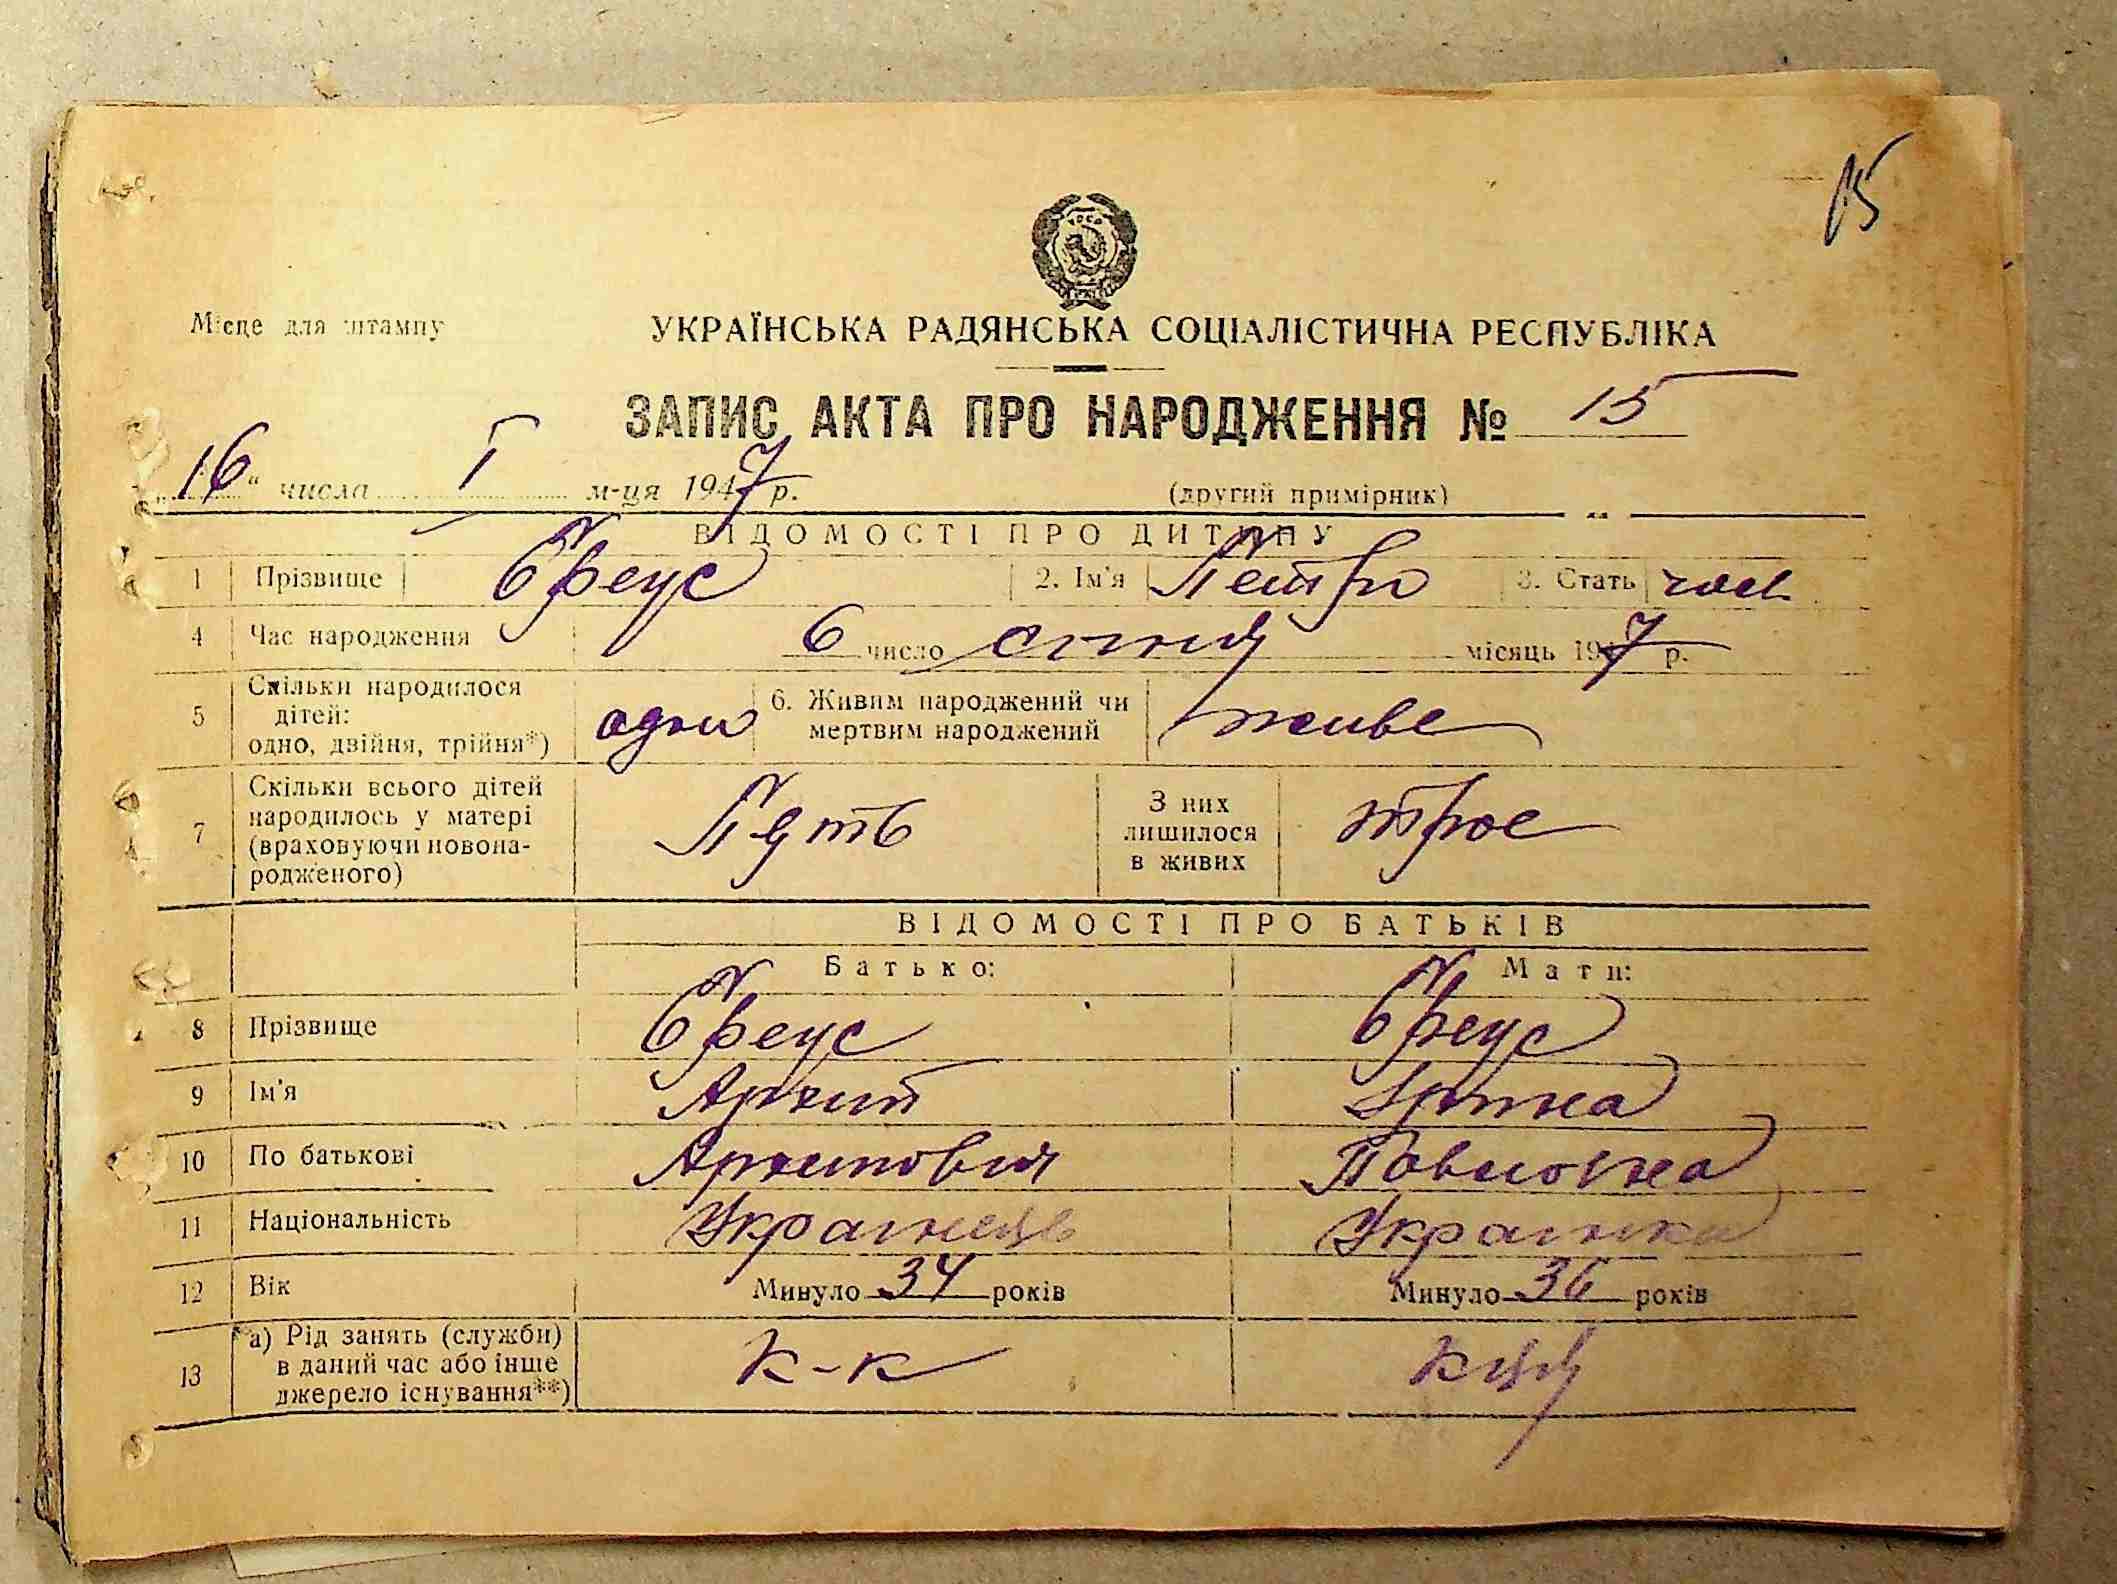 15
Місце для штампу
УКРАЇНСЬКА РАДЯНСЬКА СОЦІАЛІСТИЧНА РЕСПУБЛІКА
ЗАПИС АКТА ПРО НАРОДЖЕННЯ № 15
„16“ числа I м-ця 1947 р. (другий примірник)
ВІДОМОСТІ ПРО ДИТИНУ
1 Прізвище Бреус 2. Ім'я Петро 3. Стать чол.
4 Час народження 6 число січня місяць 1947 р.
5 Скільки народилося дітей: одно, двійня, трійня*) одно 6. Живим народжений чи мертвим народжений живе
7 Скільки всього дітей народилось у матері (враховуючи новонародженого) Пять З них лишилося в живих трое
ВІДОМОСТІ ПРО БАТЬКІВ
Батько: Мати:
8 Прізвище Бреус Бреус
9 Ім'я Архип
10 По батькові Архипович Павловна
11 Національність Українець Українка
12 Вік Минуло 34 років Минуло 36 років
13 а) Рід занять (служби) в даний час або інше джерело існування**) к-к